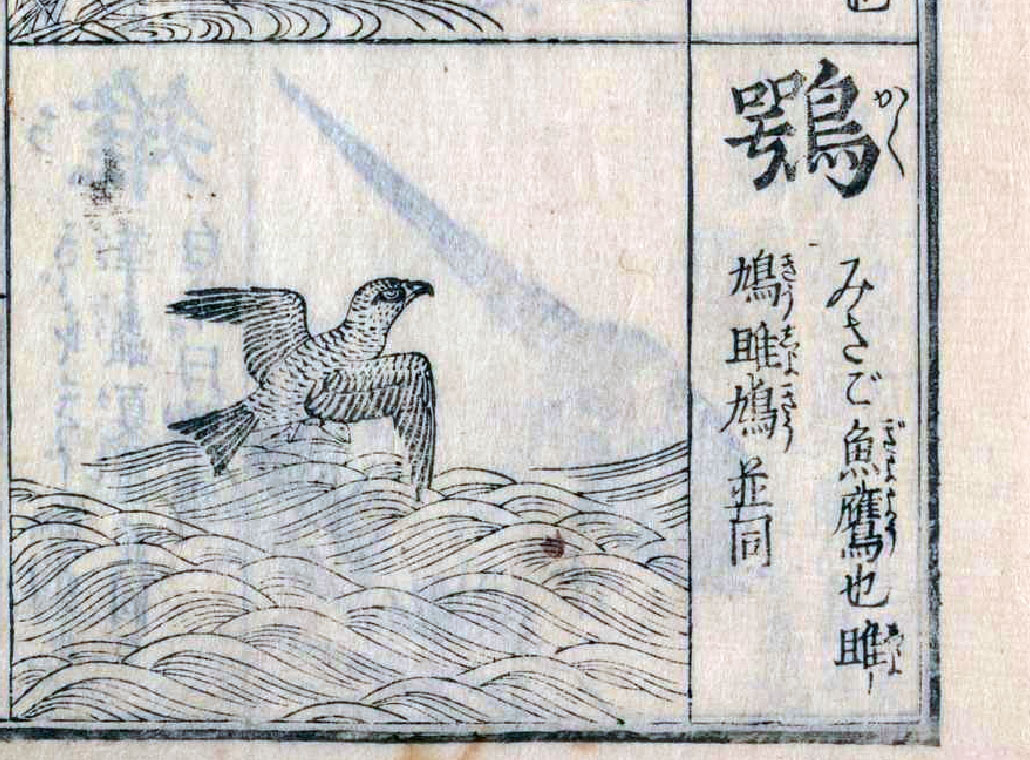 鶚
かく
みさご魚鷹也雎
ぎよよう
しよ
鳩雎鳩並同
きう
しよきう